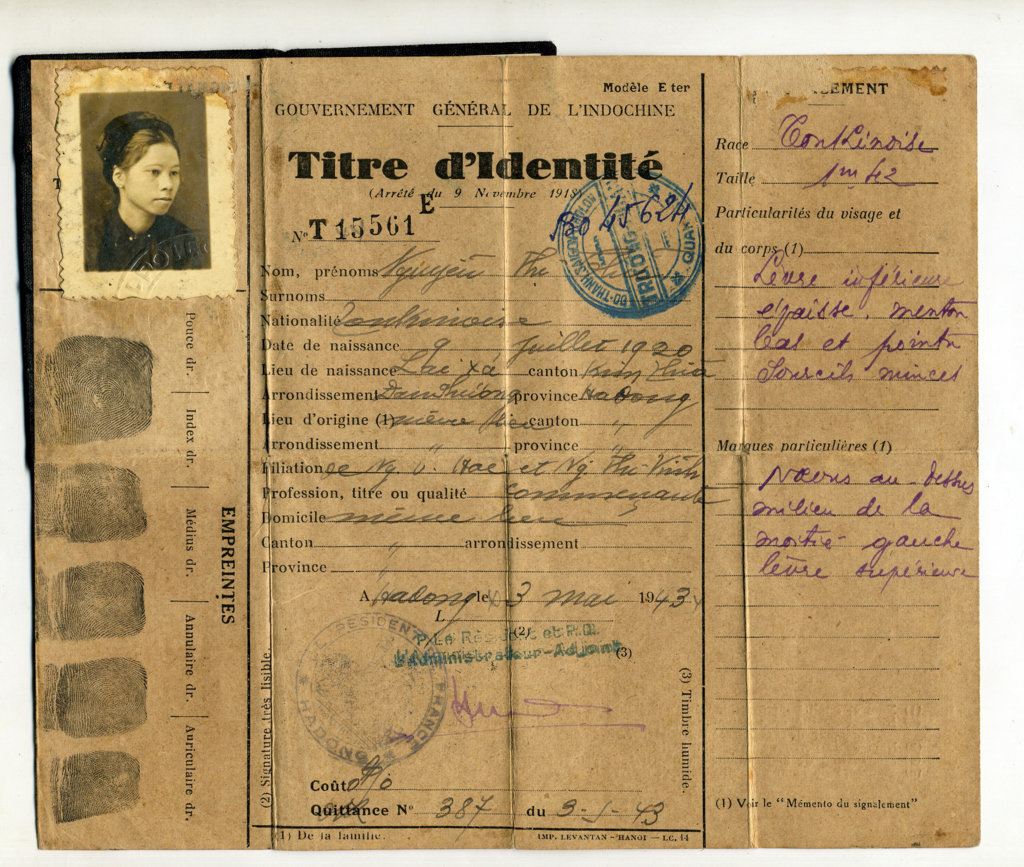 Modèle E ter
GOUVERNEMENT GÉNÉRAL DE L'INDOCHINE
Titre d'Identité
(Arrêté du 9 Novembre 1918)
E
N° T 15561
Nom, prénoms Nguyễn Thị
Surnoms
Nationalité Tonkinoise
Date de naissance 9 Juillet 1920
Lieu de naissance Lac Xá canton
Arrondissement Dan Phuong province Hadong
Lieu d'origine (1) même lieu canton "
Arrondissement " province "
Filiation de Ng. V. et Ng. Thi
Profession, titre ou qualité Commerçante
Domicile même lieu
Canton " arrondissement
Province
A Hadong le 3 mai 1943
L (2)
P. Le Résident et P.D.
L'Administrateur-Adjoint
(3)
RESIDENT FRANCE HADONG
(2) Signature très lisible.
(3) Timbre humide.
Coût
Quittance N° 387 du 3-5-43
(1) De la famille.
IMP. LEVANTAN - HANOI — LC. 14
EMPREINTES
Pouce dr.
Index dr.
Médius dr.
Annulaire dr.
Auriculaire dr.
Race Tonkinoise
Taille 1m42
Particularités du visage et
du corps (1)
Lèvre inférieure
épaisse, menton
bas et pointu
Sourcils minces
Marques particulières (1)
Naevus au-dessus
milieu de la
moitié gauche
lèvre supérieure
(1) Voir le "Mémento du signalement"